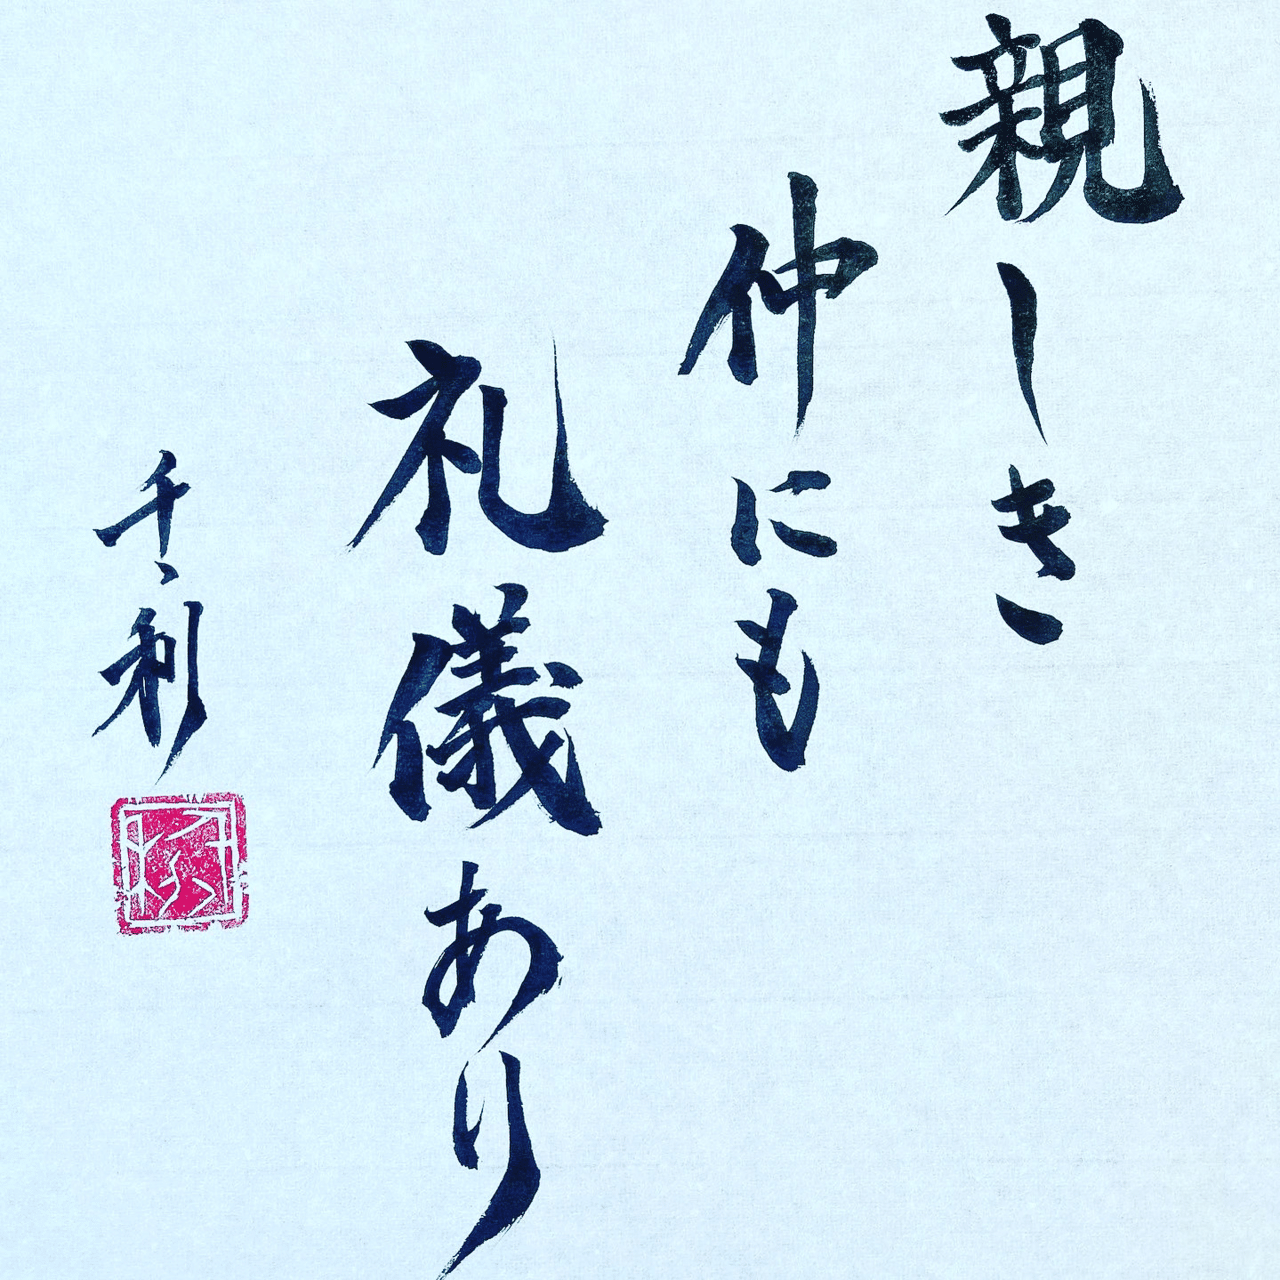 親しき
仲にも
礼儀あり
千利